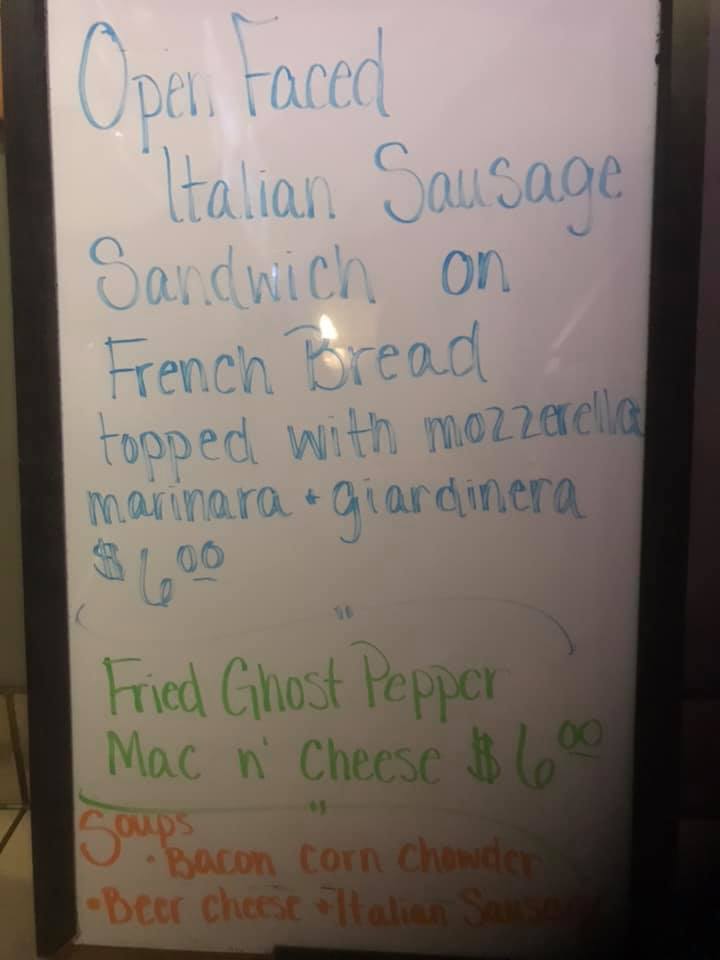 Open Faced
Italian Sausage
Sandwich on
French Bread
topped with mozzerella
marinara + giardinera
$6.00
Fried Ghost Pepper
Mac n' Cheese $6.00
Soups
• Bacon corn chowder
• Beer cheese • Italian Sausage